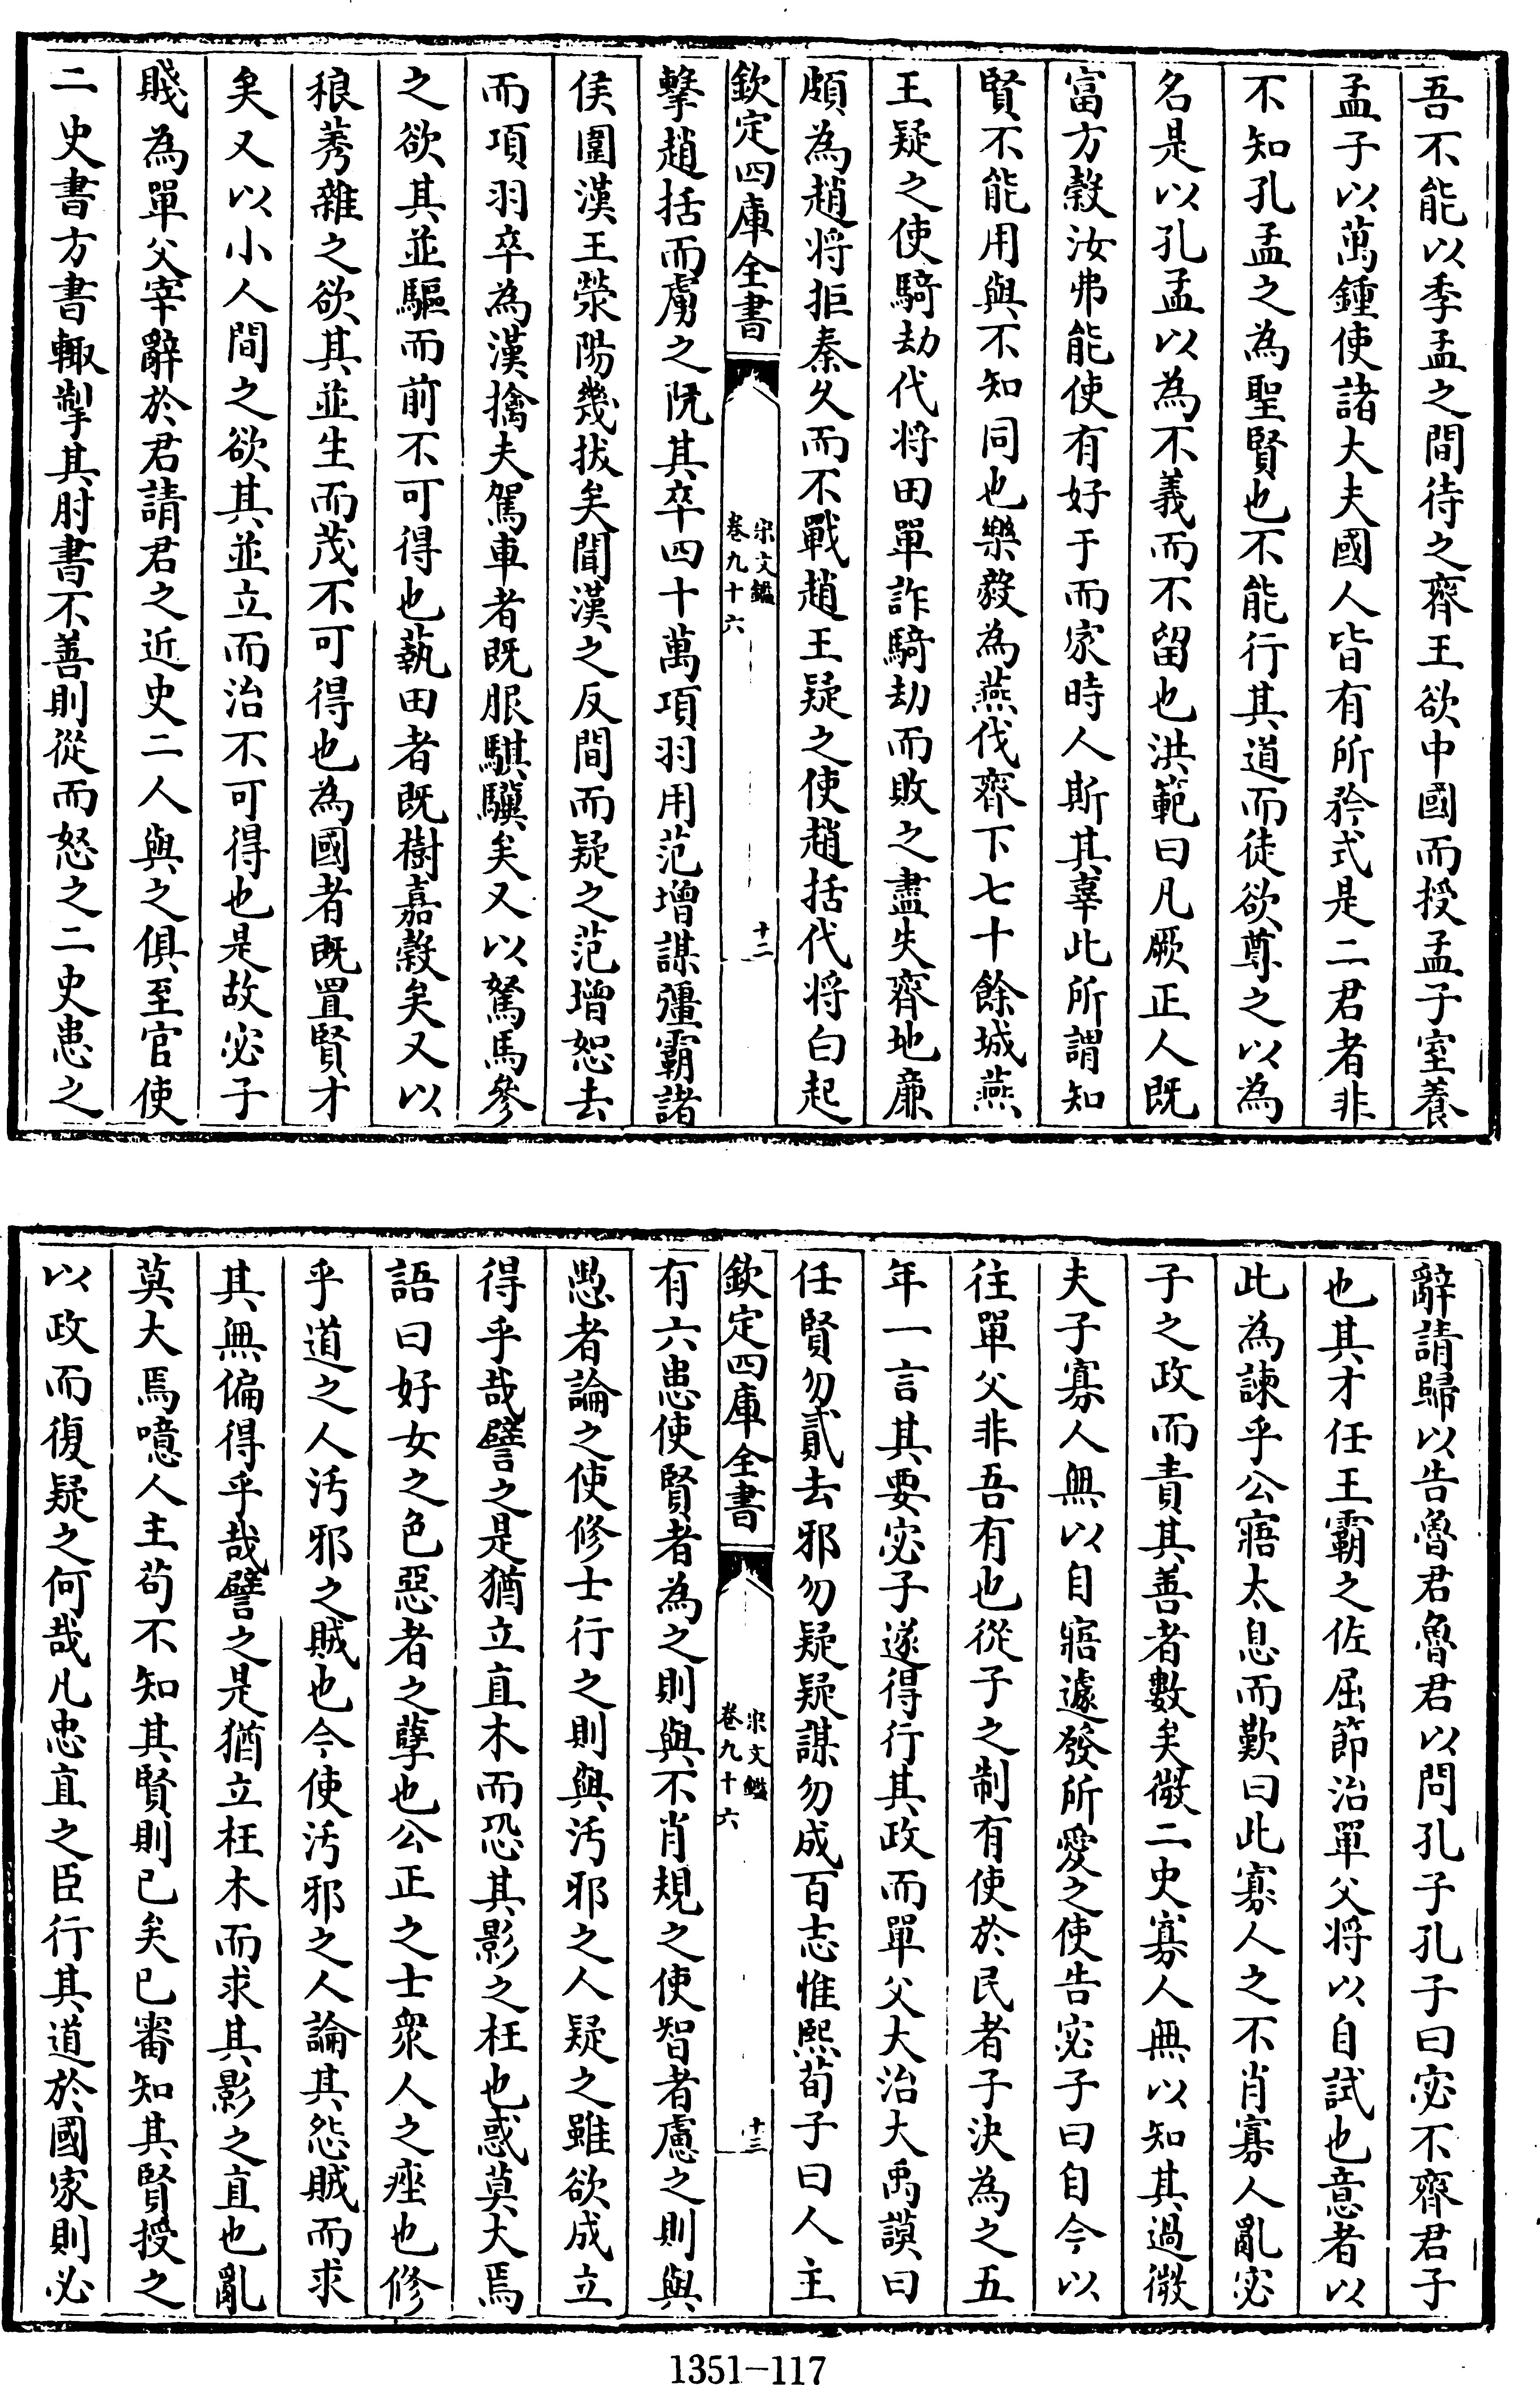 吾不能以季孟之間待之齊王欲中國而授孟子室養
孟子以萬鍾使諸大夫國人皆有所矜式是二君者非
不知孔孟之為聖賢也不能行其道而徒欲尊之以為
名是以孔孟以為不義而不留也洪範曰凡厥正人既
富方穀汝弗能使有好于而家時人斯其辜此所謂知
賢不能用與不知同也樂毅為燕伐齊下七十餘城燕
王疑之使騎劫代將田單詐騎劫而敗之盡失齊地廉
頗為趙將拒秦久而不戰趙王疑之使趙括代將白起
欽定四庫全書
宋文鑑
卷九十六
十二
擊趙括而虜之阬其卒四十萬項羽用范增謀彊霸諸
侯圍漢王滎陽幾拔矣聞漢之反間而疑之范增怒去
而項羽卒為漢擒夫駕車者既服騏驥矣又以駑馬參
之欲其並驅而前不可得也蓺田者既樹嘉穀矣又以
稂莠雜之欲其並生而茂不可得也為國者既置賢才
矣又以小人間之欲其並立而治不可得也是故宓子
賤為單父宰辭於君請君之近史二人與之俱至官使
二史書方書輙掣其肘書不善則從而怒之二史患之
辭請歸以告魯君魯君以問孔子孔子曰宓不齊君子
也其才任王霸之佐屈節治單父將以自試也意者以
此為諫乎公寤太息而歎曰此寡人之不肖寡人亂宓
子之政而責其善者數矣微二史寡人無以知其過微
夫子寡人無以自寤遽發所愛之使告宓子曰自今以
往單父非吾有也從子之制有使於民者子決為之五
年一言其要宓子遂得行其政而單父大治大禹謨曰
任賢勿貳去邪勿疑疑謀勿成百志惟熙荀子曰人主
欽定四庫全書
宋文鑑
卷九十六
十三
有六患使賢者為之則與不肖規之使智者慮之則與
愚者論之使修士行之則與汚邪之人疑之雖欲成立
得乎哉譬之是猶立直木而恐其影之枉也惑莫大焉
語曰好女之色惡者之孽也公正之士衆人之痤也修
乎道之人汚邪之賊也今使汚邪之人論其怨賊而求
其無偏得乎哉譬之是猶立枉木而求其影之直也亂
莫大焉噫人主苟不知其賢則已矣已審知其賢授之
以政而復疑之何哉凡忠直之臣行其道於國家則必
1351-117